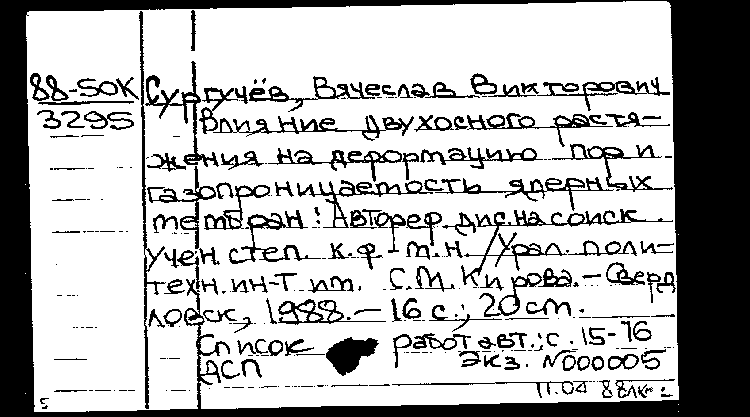 88-50К Сургучёв, Вячеслав Викторович
3295 Влияние двухосного растя-
жения на деформацию пор и
газопроницаемость ядерных
мембран: Автореф. дис. на соиск.
учен. степ. к.ф-м.н. /Урал. поли-
техн. ин-т им. С.М. Кирова. – Сверд
ловск, 1988. – 16 с.; 20 cm.
Список работ авт.: с. 15-16
ДСП Экз. N000005
11.04 88
5